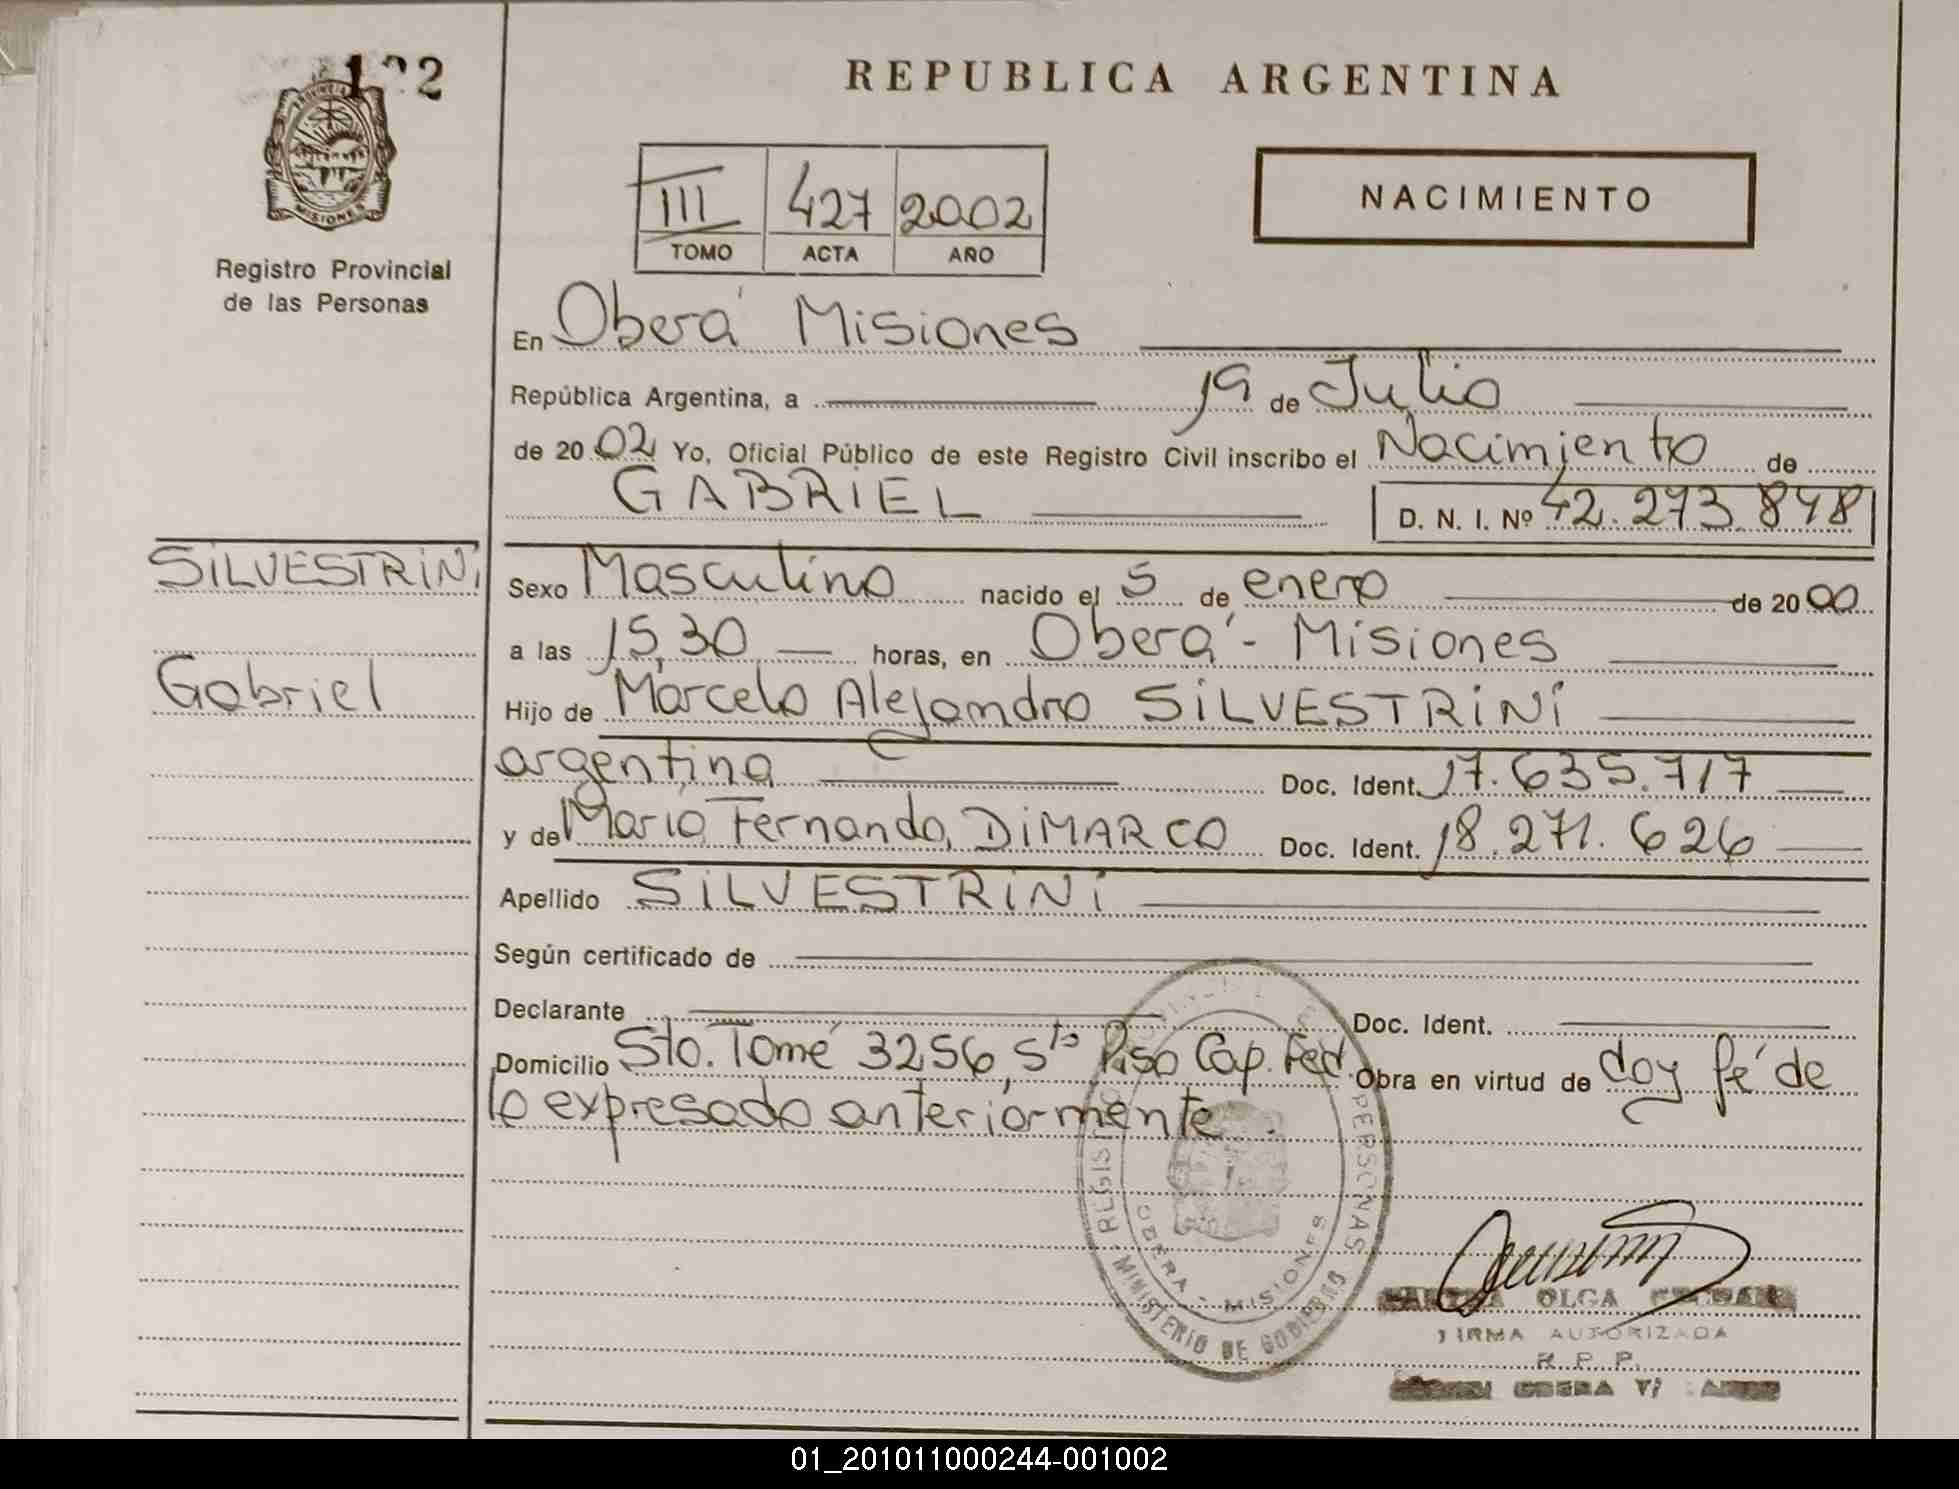 REPUBLICA ARGENTINA
PROVINCIA
MISIONES
Registro Provincial
de las Personas
III 427 2002
TOMO ACTA AÑO
NACIMIENTO
En Oberá Misiones
República Argentina, a 19 de Julio
de 2002 Yo, Oficial Público de este Registro Civil inscribo el Nacimiento de
GABRIEL D. N. I. Nº 42.273.878
SILVESTRINI
Gabriel
Sexo Masculino nacido el 5 de enero de 2000
a las 15,30 horas, en Oberá - Misiones
Hijo de Marcelo Alejandro SILVESTRINI
argentina Doc. Ident. 17.635.717
y de María Fernanda, DIMARCO Doc. Ident. 18.271.626
Apellido SILVESTRINI
Según certificado de
Declarante Doc. Ident.
Domicilio Sto. Tomé 3256, 5to Piso Cap. Fed. Obra en virtud de doy fé de
lo expresado anteriormente.
PERSONAS
OBERA - MISIONES
MINISTERIO DE GOBIERNO
OLGA
FIRMA AUTORIZADA
R. P. P.
OBERA
01_201011000244-001002